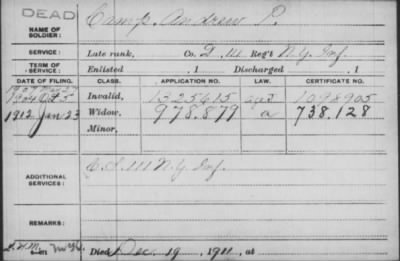 DEAD
NAME OF SOLDIER: Camp, Andrew P.
SERVICE: Late rank, Co. D, 111 Reg't N.Y. Inf.
TERM OF SERVICE: Enlisted , 1 Discharged , 1
DATE OF FILING. CLASS. APPLICATION NO. LAW. CERTIFICATE NO.
1904 Oct 5 Invalid, 1325615 1098905
1912 Jan 23 Widow, 978.879 a 738.128
Minor,
ADDITIONAL SERVICES: C. D. 111 N.Y. Inf.
REMARKS:
Died Dec. 19, 1911, at